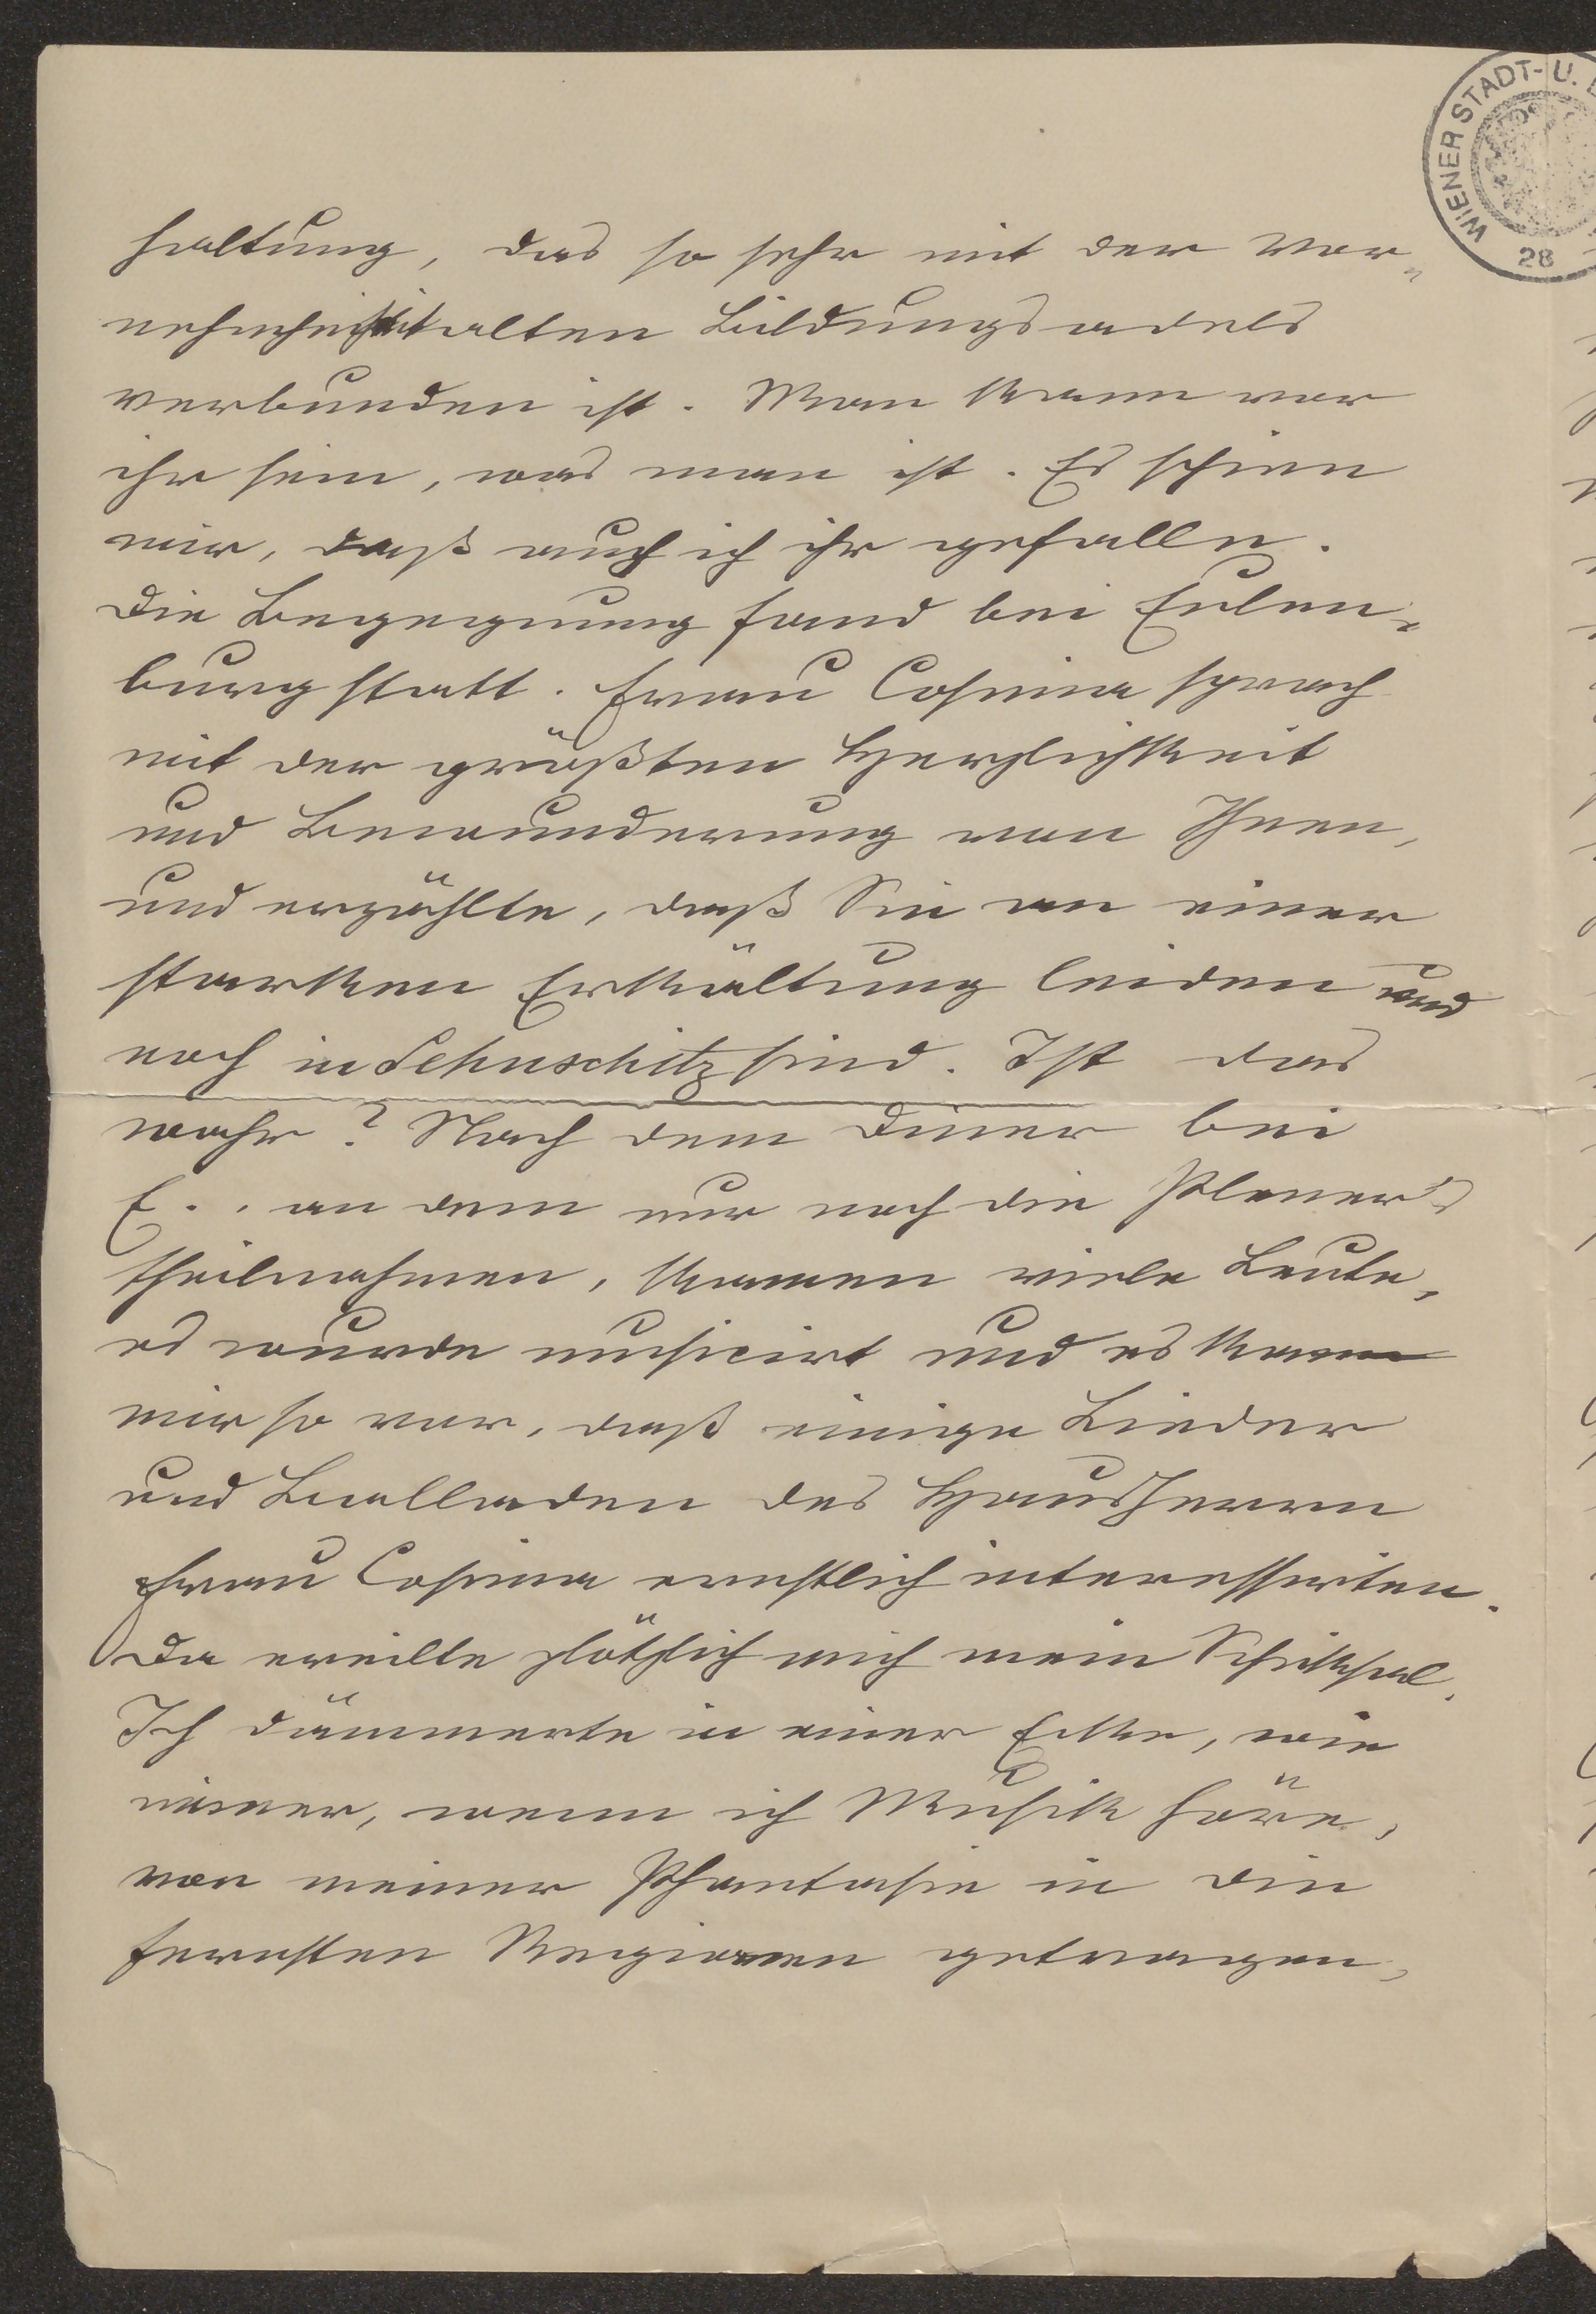 haltung, das so sehr mit der Vor-
nehmheit alten Bildungsadels
verbunden ist. Man kann vor
ihr sein, was man ist. Es schien
mir, daß auch ich ihr gefalle.
Die Begegnung fand bei Eulen-
burg statt. Frau Cosima sprach
mit der größten Herzlichkeit
und Bewunderung von Ihnen,
und erzählte, daß Sie an einer
starken Erkältung leiden und
noch in Lehnschitz sind. Ist das
wahr? Nach dem Diner bei
E.., an dem nur noch die Plener's
theilnahmen, kamen viele Leute,
es wurde musicirt und es kam
mir so vor, daß einige Lieder
und Balladen des Hausherrn
Frau Cosima ernstlich interessirten.
Da ereilte plötzlich mich mein Schicksal.
Ich dämmerte in einer Ecke, wie
immer, wenn ich Musik höre,
von meiner Phantasie in die
fernsten Regionen getragen,
WIENER STADT- U.
28